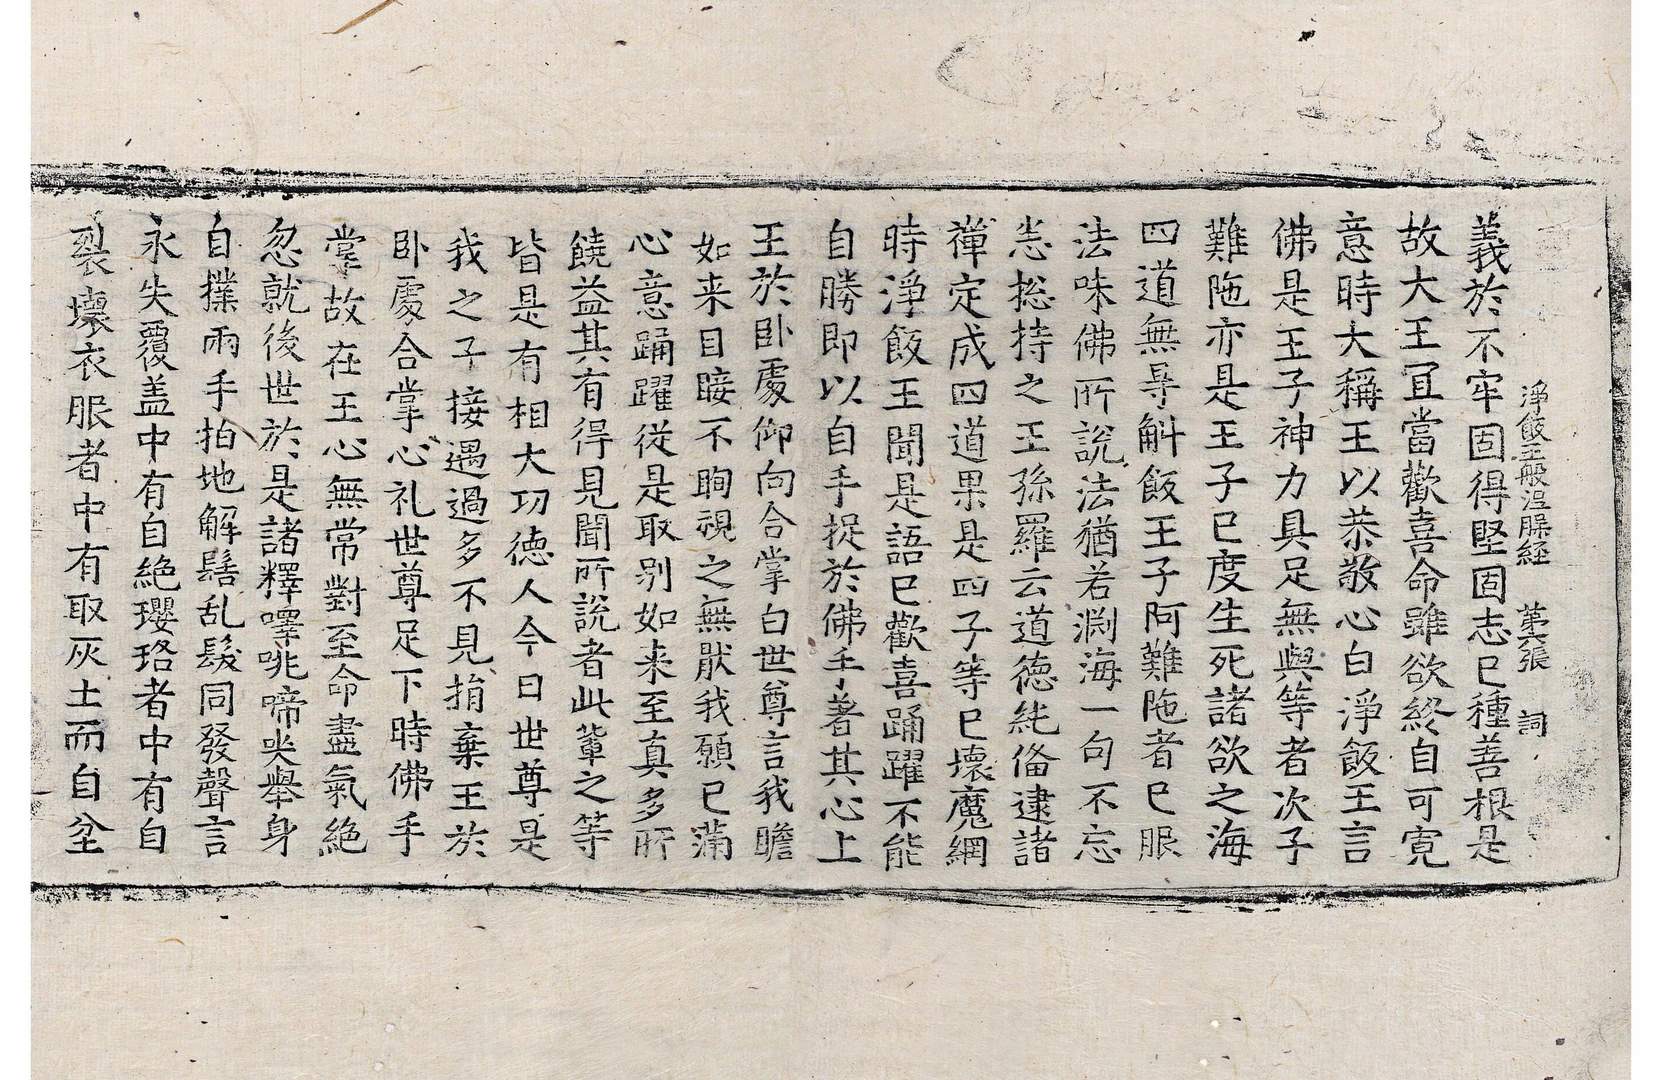 淨飯王般涅槃経 第六張 詞
義於不牢固得堅固志已種善根是
故大王冝當歡喜命雖欲終自可寬
意時大稱王以恭敬心白淨飯王言
佛是王子神力具足無與等者次子
難陁亦是王子已度生死諸欲之海
四道無㝵斛飯王子阿難陁者已服
法味佛所說法猶若淵海一句不忘
悉揔持之王孫羅云道德純俻逮諸
禪定成四道果是四子等已壞魔網
時淨飯王聞是語已歡喜踊躍不能
自勝即以自手捉於佛手著其心上
王於卧處仰向合掌白世尊言我瞻
如来目睫不眴視之無猒我願已滿
心意踊躍從是取别如来至真多所
饒益其有得見聞所說者此軰之等
皆是有相大功德人今日世尊是
我之子接遇過多不見捐棄王於
卧處合掌心礼世尊足下時佛手
掌故在王心無常對至命盡氣絶
忽就後世於是諸釋嘷咷啼哭舉身
自撲兩手拍地解髻乱髮同發聲言
永失覆盖中有自絶瓔珞者中有自
裂壞衣服者中有取灰土而自坌